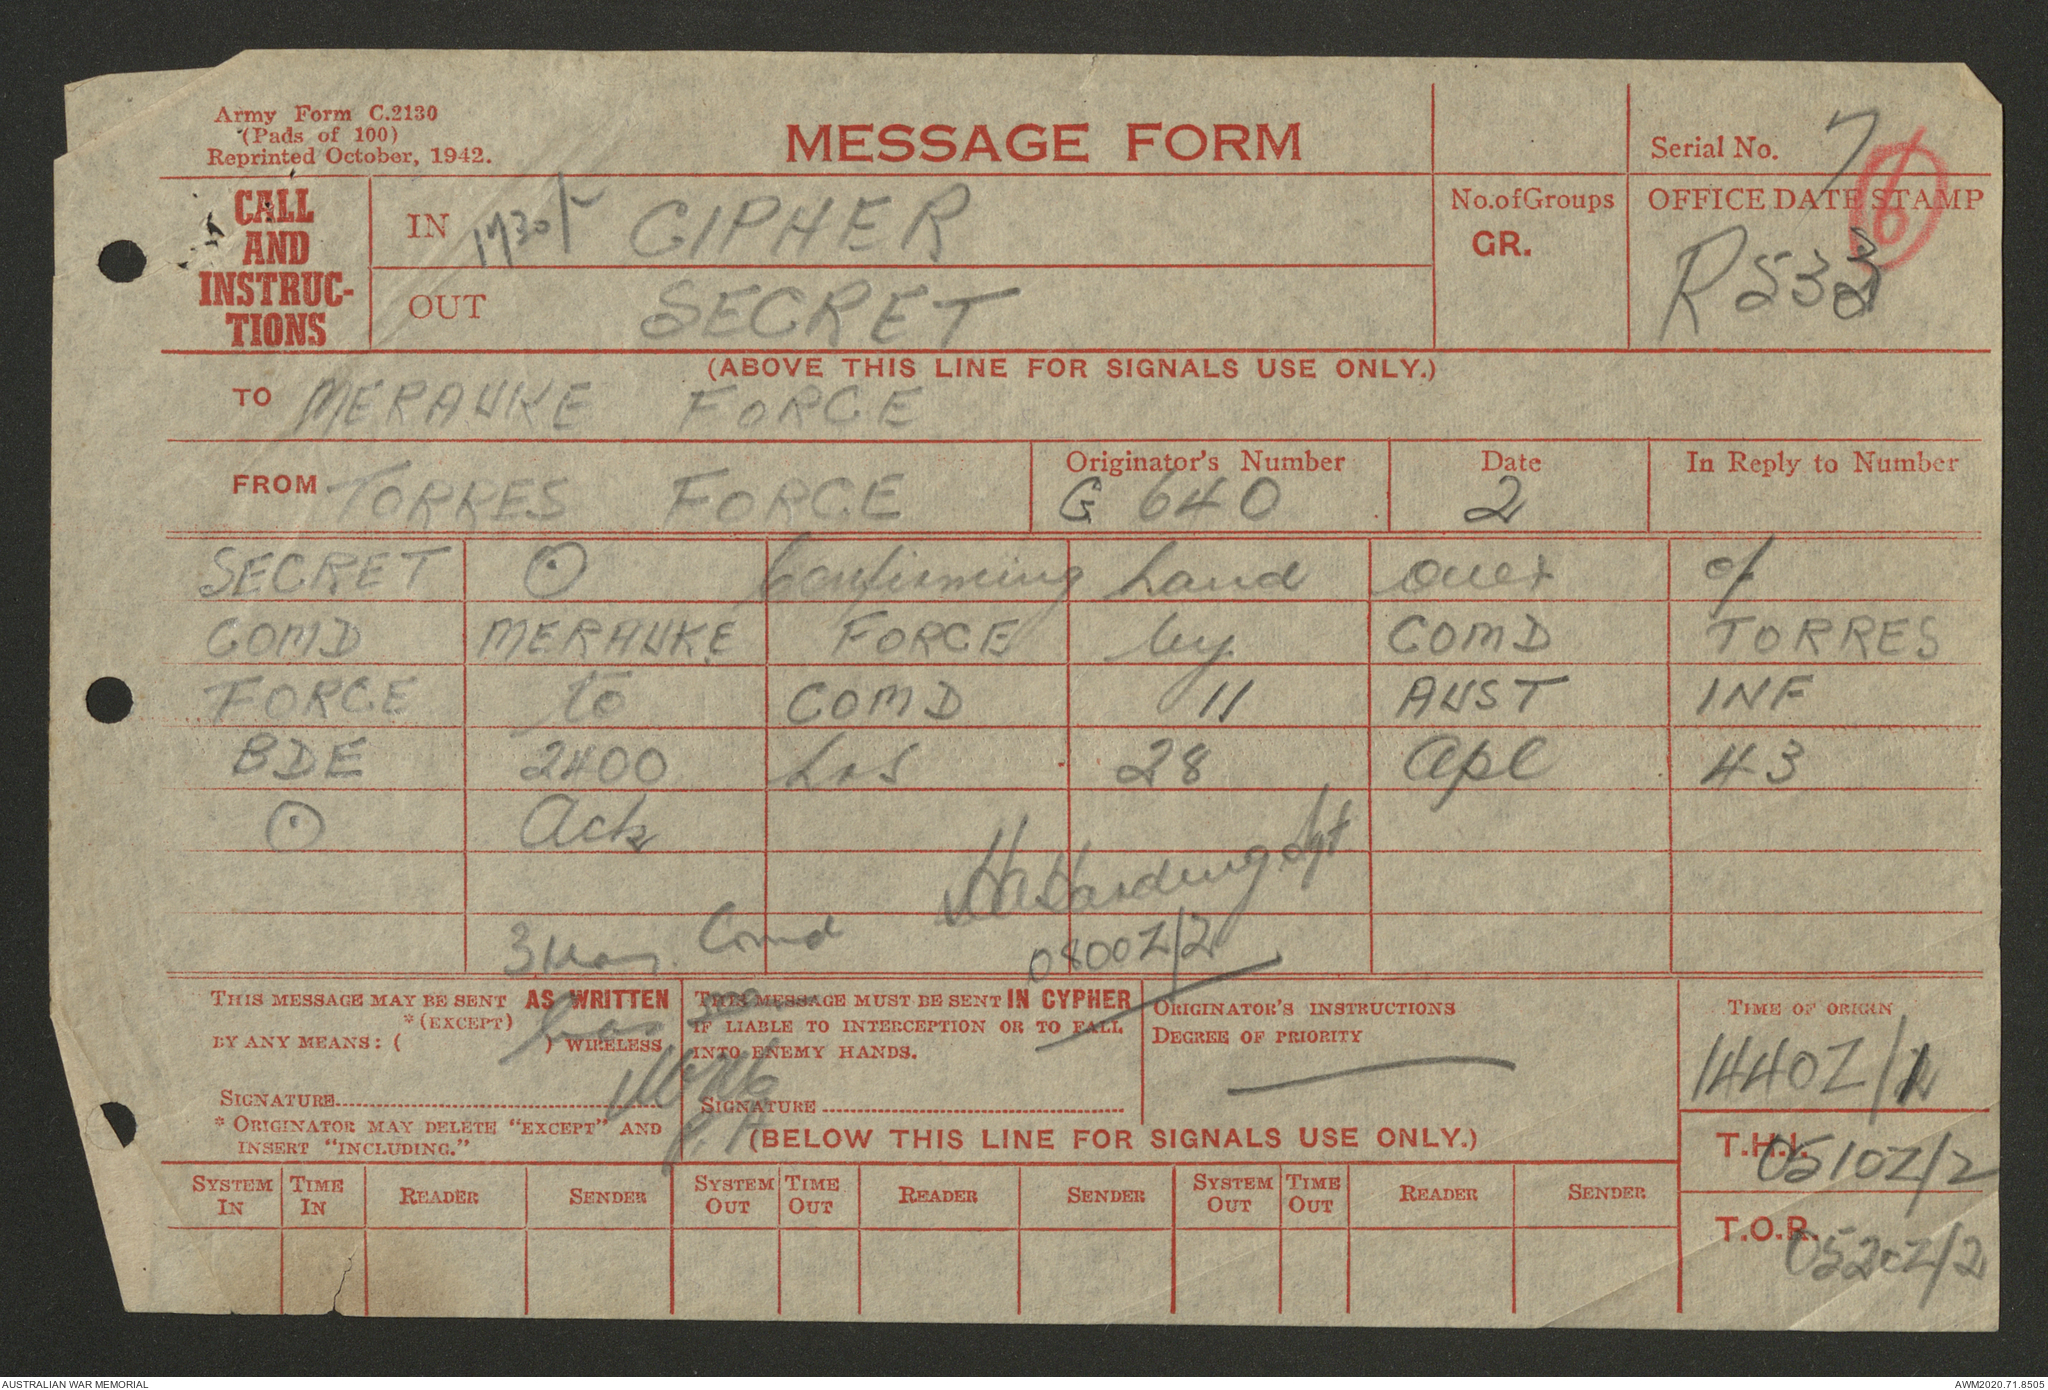 Army Form C.2130
(Pads of 100)
Reprinted October, 1942.
MESSAGE FORM
Serial No. 7
6
CALL AND INSTRUC-TIONS
IN 1730 CIPHER
OUT SECRET
No. of Groups
GR.
OFFICE DATE STAMP
R 533
(ABOVE THIS LINE FOR SIGNALS USE ONLY.)
TO MERAUKE FORCE
FROM TORRES FORCE
Originator's Number G 640
Date 2
In Reply to Number
SECRET ⊙ Confirming hand over of
COMD MERAUKE FORCE by COMD TORRES
FORCE to COMD 11 AUST INF
BDE 2400 hrs 28 Apl 43
⊙ Ack
Harding Sgt
0800Z/2
3 May. Comd
THIS MESSAGE MAY BE SENT AS WRITTEN
*(EXCEPT)
BY ANY MEANS: ( ) WIRELESS
SIGNATURE
* ORIGINATOR MAY DELETE "EXCEPT" AND
INSERT "INCLUDING."
has seen
THIS MESSAGE MUST BE SENT IN CYPHER
IF LIABLE TO INTERCEPTION OR TO FALL
INTO ENEMY HANDS.
SIGNATURE
ORIGINATOR'S INSTRUCTIONS
DEGREE OF PRIORITY
TIME OF ORIGIN
1440Z/
(BELOW THIS LINE FOR SIGNALS USE ONLY.)
T.H.I. 0510Z/2
T.O.R. 0520Z/2
SYSTEM IN TIME IN READER SENDER SYSTEM OUT TIME OUT READER SENDER SYSTEM OUT TIME OUT READER SENDER
AUSTRALIAN WAR MEMORIAL
AWM2020.71.8505